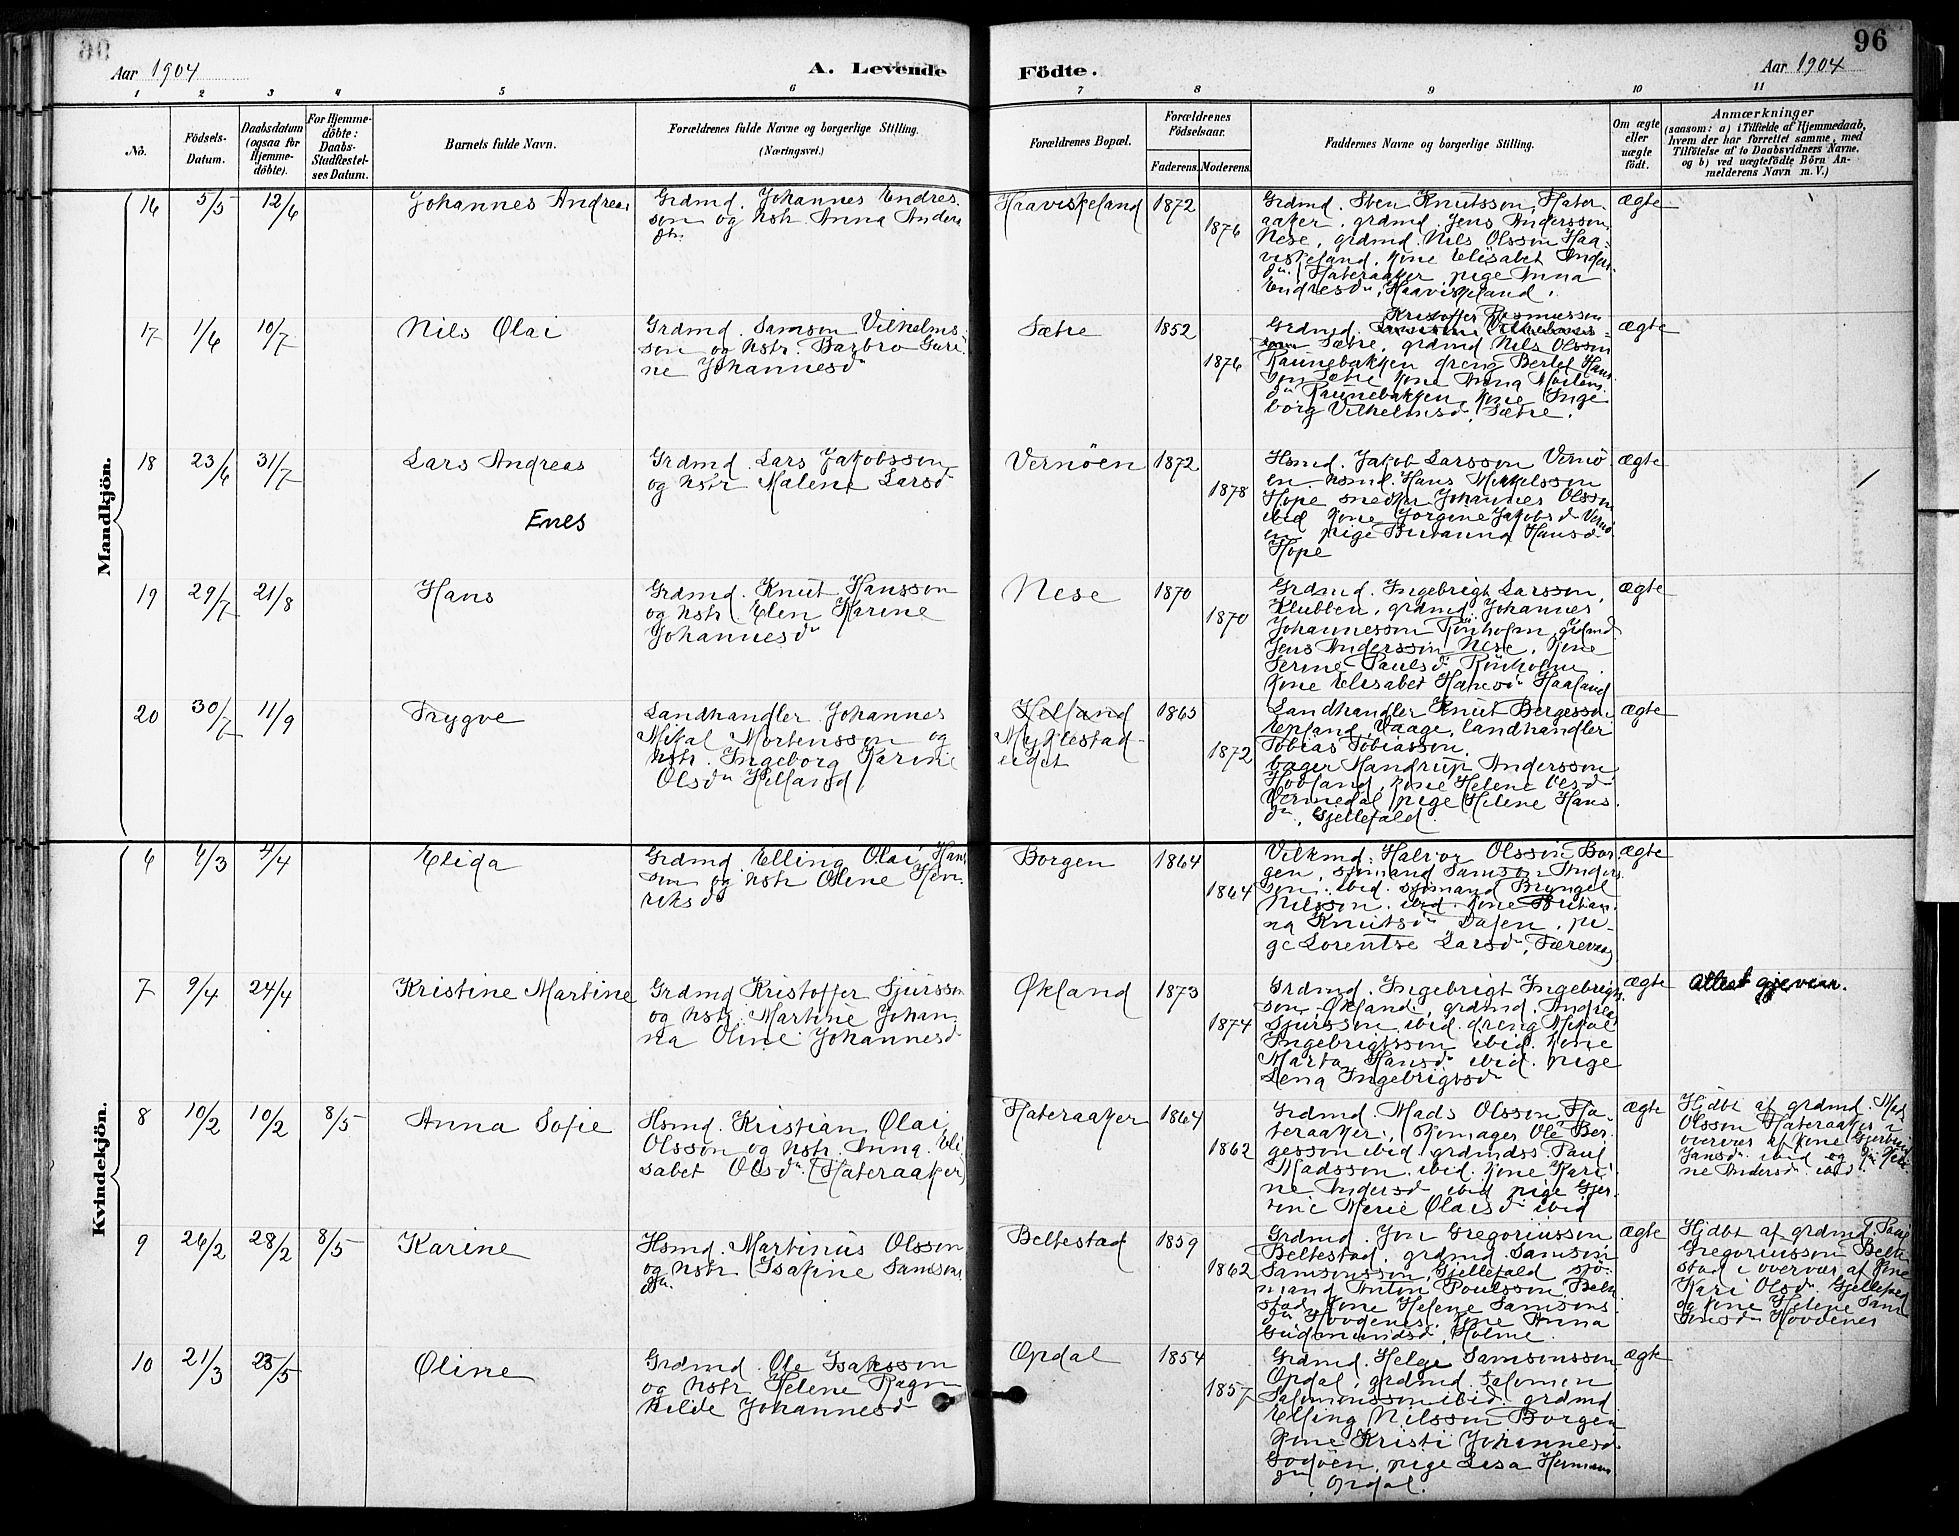 96
Aar 1904
A. Levende Födte.
Aar 1904
1 2 3 4 5 6 7 8 9 10 11
No.
Födsels-Datum.
Daabsdatum (ogsaa for Hjemme-döbte).
For Hjemme-döbte: Daabs-Stadfæstel-ses Datum.
Barnets fulde Navn.
Forældrenes fulde Navne og borgerlige Stilling.
(Næringsvei.)
Forældrenes Bopæl.
Forældrenes Födselsaar.
Faderens. Moderens.
Faddernes Navne og borgerlige Stilling.
Om ægte eller uægte födt.
Anmærkninger
(saasom: a) i Tilfælde af Hjemmedaab,
hvem der har forrettet samme, med
Tilföielse af to Daabsvidners Navne,
og b) ved uægtefödte Börn An-
melderens Navn m. V.)
Mandkjön.
16 5/5 12/6 Johannes Andreas
Grdmd. Johannes Endres-
son og hstr. Anna Anders
dtr.
Haaviskeland 1872 1876
Grdmd. Sten Knutsson, Hater-
aaker, grdmd. Jens Andersson
Nese, grdmd. Nils Olsson Haa-
viskeland, kone Elisabet Anders-
dtr Hateraaker, pige Anna
Endresdtr, Haaviskeland.
ægte
17 1/6 10/7 Nils Olai
Grdmd. Samson Vilhelms-
son og hstr. Barbro Guri-
ne Johannesdtr
Sætre 1852 1876
Kristoffer Rasmusson
Grdmd. Samson Vilhelms-
son Sætre, grdmd Nils Olsson
Raunebakken dreng Bertel Hans-
son Sætre kone Anna Mortens-
dtr Raunebakken, kone Inge
borg Vilhelmsd. Sætre.
ægte
18 23/6 31/7 Lars Andreas
Enes
Grdmd. Lars Jakobsson
og hstr Malene Larsd
Vernöen 1872 1878
Hsmd. Jakob Larsson Vernö
en, hsmd. Hans Mikkelsson
Hope snedker Johannes Olsson
ibid kone Jorgine Jakobsd Vernö
en pige Hansd
Hope
ægte
19 29/7 21/8 Hans
Grdmd. Knut Hansson
og hstr Elen Karine
Johannesdtr
Nese 1870 1870
Grdmd. Ingebrigt Larsson,
Klubben, grdmd. Johannes
Johannesson Rönholm grdmd
Jens Andersson Nese, kone
Serine Paulsd Rönholm
kone Elisabet Haaland
ægte
20 30/7 11/9 Trygve
Landhandler Johannes
Mikal Mortensson og
hstr. Ingeborg Karine
Olsdtr Helland
Helland
Myklestad-
eidet
1863 1872
Landhandler Knut Bergesson
Epland, Vaage, landhandler
Tobias Tobiasson,
bager Mandrup Andersson
Hovland, kone Helene Olsd
Vermedal, pige Helene Hans
dtr, Gjellefald.
ægte
Kvindekjön.
6 6/3 4/4 Elida
Grdmd Elling Olai Han
son og hstr Oline Hen-
riksd
Borgen 1864 1864
Halvor Olsson Bor-
gen, sjömand Samson Anders
son. ibid. sjömand Bryngel
Nilsson. ibid. kone Britian-
na Knutsdtr Dalen, pi-
ge Lorentse Larsd, Færevaag
ægte
7 9/4 24/4 Kristine Martine
Grdmd Kristoffer Sjursson
og hstr. Martine Johan-
na Oline Johannesd
Økland 1873 1874
Grdmd. Ingebrigt Ingebrigts-
son, Økland, grdmd. Andrea
Sjursson ibid. dreng Mikal
Ingebrigtsson ibid. kone
Marta Hansdtr ibid. pige
Lena Ingebrigtsd
ægte
Attest gjeven.
8 10/2 10/2 8/5 Anna Sofie
Hsmd. Kristian Olai
Olsson og hstr. Anna Eli-
sabet Olsdtr (Hateraaker)
Hateraaker 1864 1862
Grdmd. Mads Olsson Ha-
teraaker, skomager Ole Ber-
gesson ibid grdmdss Paul
Madsson. ibid. kone Kari-
ne Andersd ibid pige Gjer-
tine Merie Olaisd ibid
ægte
Hjdbt af grdmd. Mads
Olsson Hateraaker i
overvær af kone
Jansd. ibid og
ne Andersd ibid.
9 26/2 28/2 8/5 Karine
Hsmd. Martinus Olsson
og hstr Isakine Samsons
dtr.
Beltestad 1859 1862
Grdmd. Jon Gregoriusson
Beltestad, grdmd. Samson
Samsonsson, Gjellefald sjö-
mand Anton Poulsson Belte
stad, kone Helene Samsons
dtr Hovdenes. kone Anna
Gudmundsd, Holme
ægte
Hjdbt af grdmd. Paul
Gregoriusson Belte
stad i overvær af kone
Kari Olsd. Gjellefald
og kone Helene Sam
sonsd Hovdenes
10 21/3 23/5 Oline
Grdmd. Ole Isaksson
og hstr Helene Ragn
hilde Johannesd
Opdal 1854 1857
Grdmd. Helge Samsonsson
Opdal, grdmd. Salomon
Salomonsson ibid. grdmd
Elling Nilsson Borgen
kone Kristi Johannesd.
Godöen, pige Lisa Hermans
dtr, Opdal.
ægte